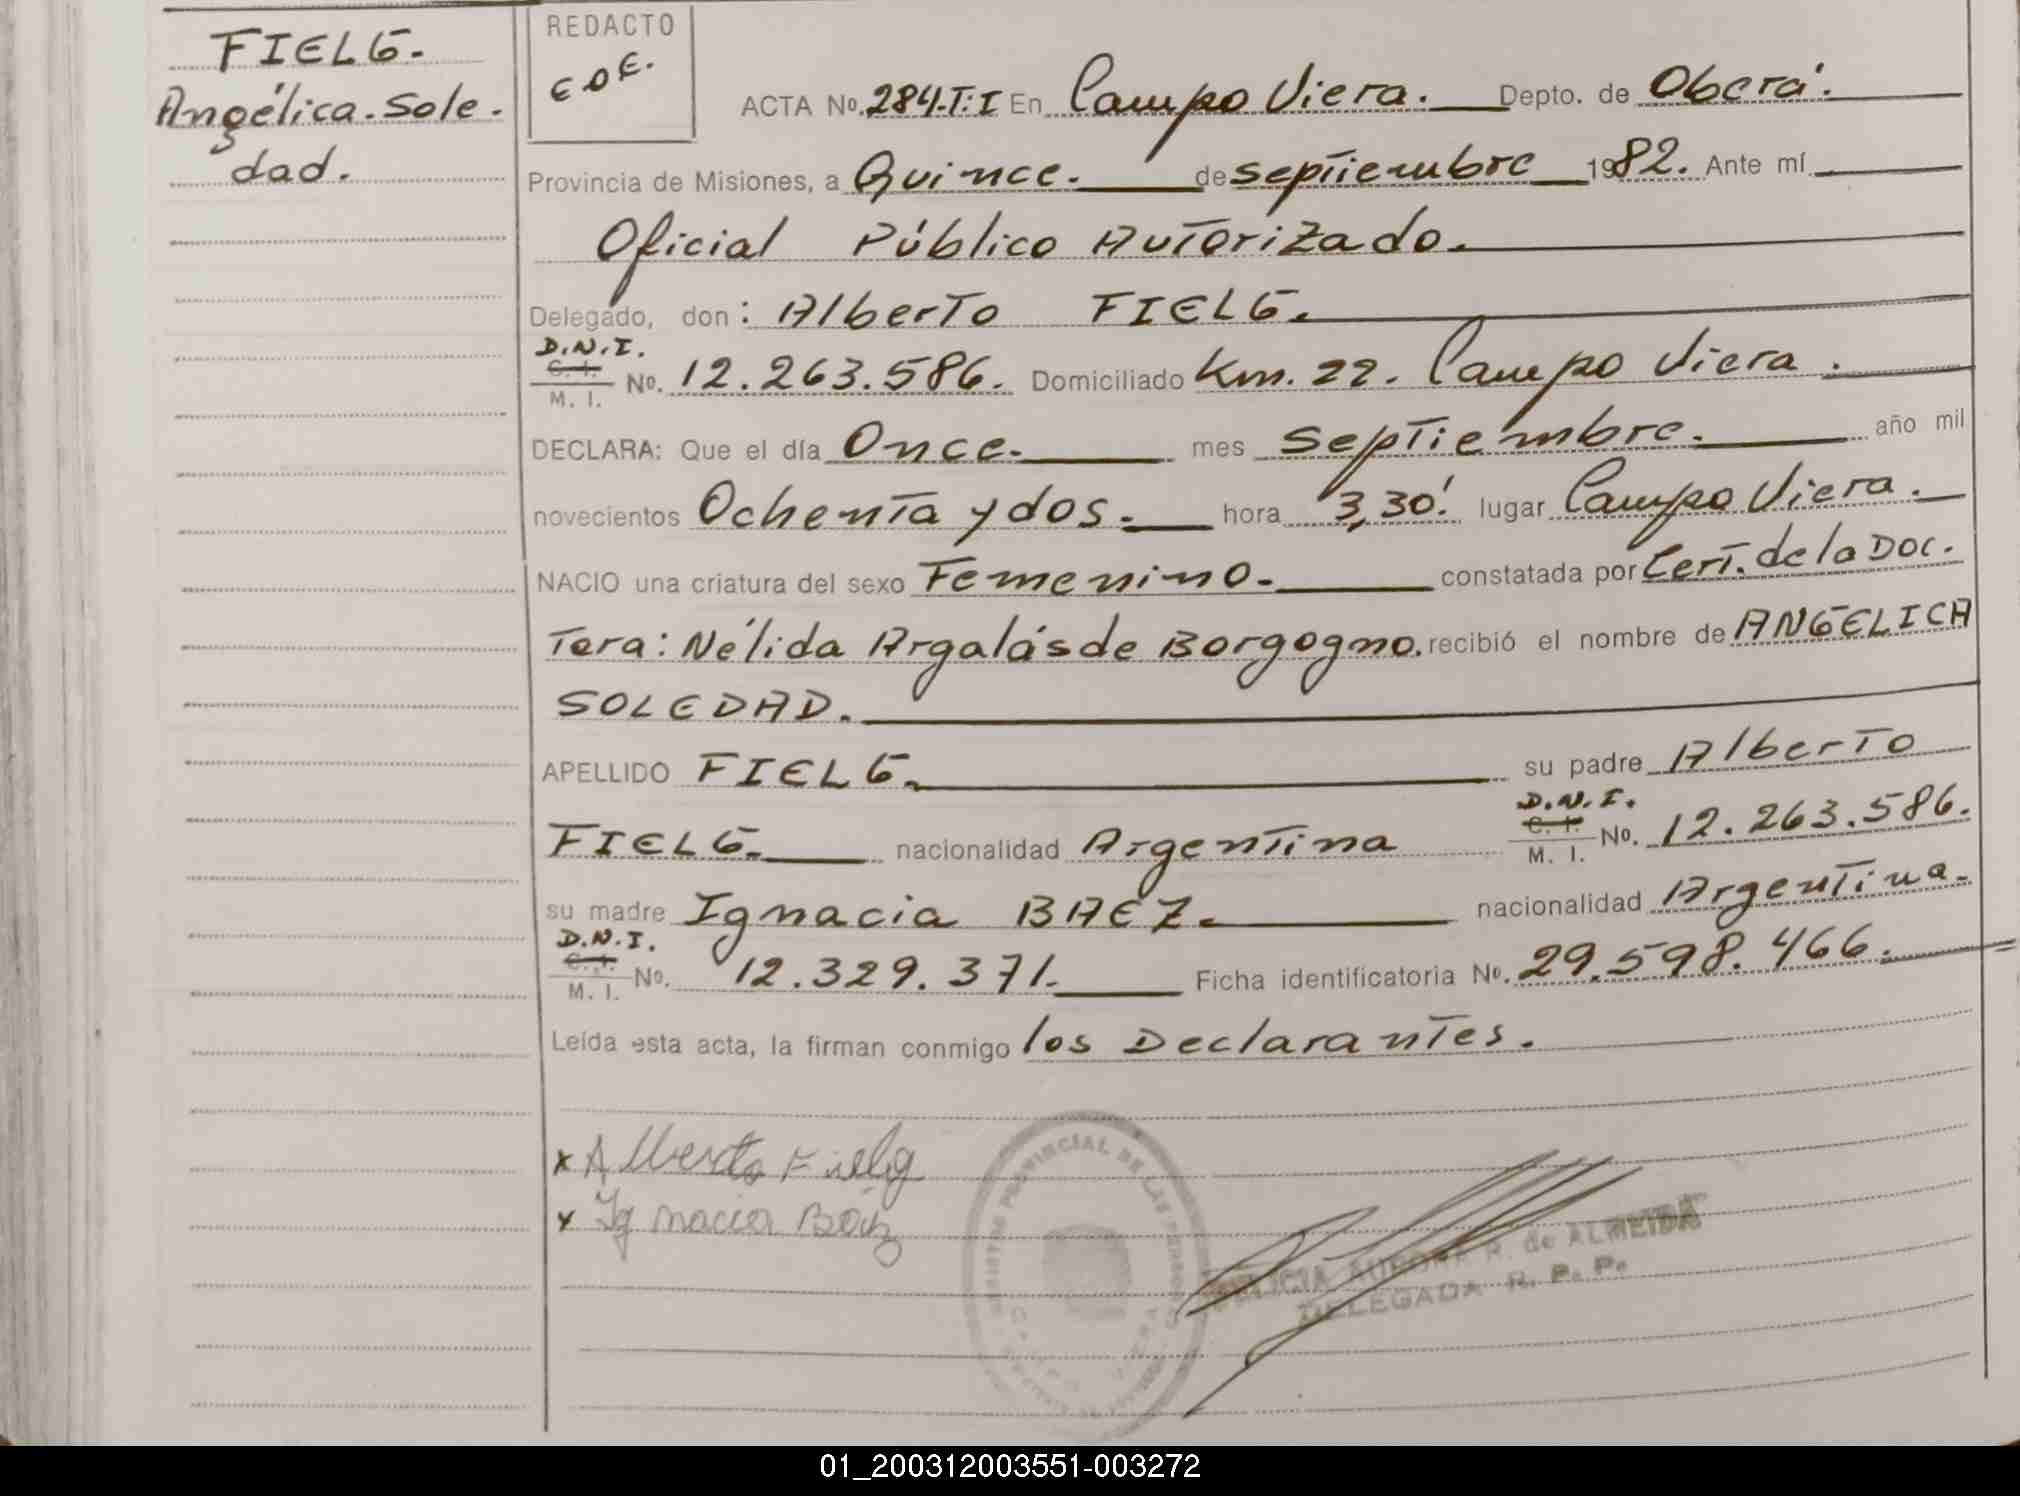 FIELG.
Angélica.Sole.
dad.
REDACTO
EDE.
ACTA No. 284-T:I En Campo Viera. Depto. de Oberá.
Provincia de Misiones, a Quince. de septiembre 1982. Ante mí
Oficial Público Autorizado.
Delegado, don: Alberto FIELG.
D.N.I.
C. I.
M. I. No. 12.263.586. Domiciliado Km. 22. Campo Viera.
DECLARA: Que el día Once. mes septiembre. año mil
novecientos Ochenta y dos. hora 3,30' lugar Campo Viera.
NACIO una criatura del sexo Femenino. constatada por Cert. de la Doc.
Tora: Nélida Argalás de Borgogno. recibió el nombre de ANGELICA
SOLEDAD.
APELLIDO FIELG. su padre Alberto
FIELG. nacionalidad Argentina D.N.I. C. I. M. I. No. 12.263.586.
su madre Ignacia BAEZ. nacionalidad Argentina.
D.N.I.
C. I.
M. I. No. 12.329.371. Ficha identificatoria No. 29.598.466.
Leída esta acta, la firman conmigo los Declarantes.
x Alberto Fielg
x Ignacia Báez
REGISTRO PROVINCIAL DE LAS PERSONAS
CAMPO VIERA
FELICIA AURORA R. de ALMEIDA
DELEGADA R. P. P.
01_200312003551-003272